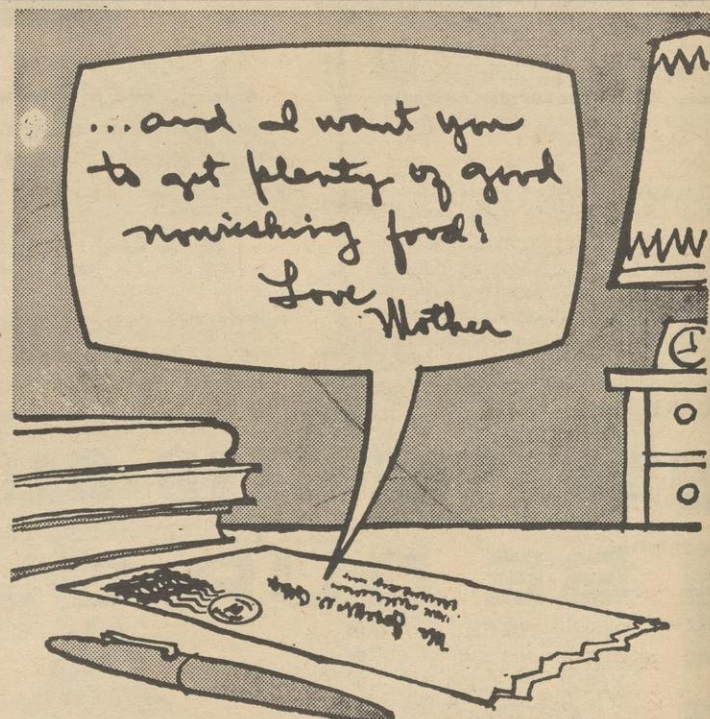 ...and I want you
to get plenty of good
nourishing food!
Love
Mother